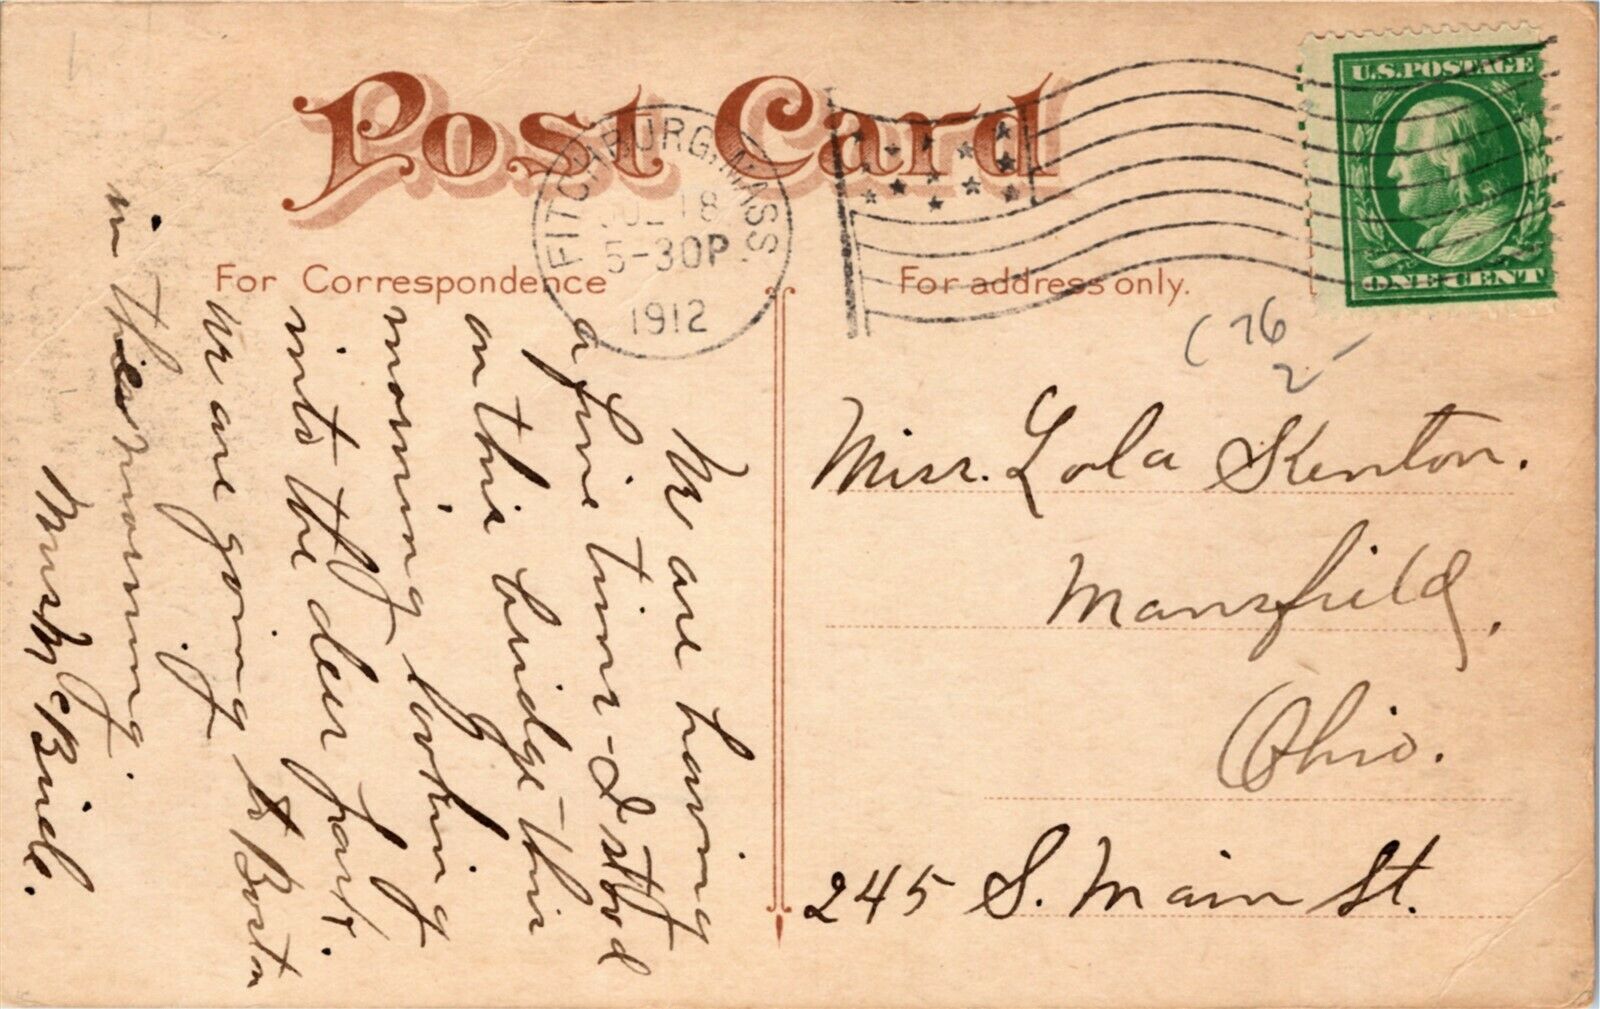 Post Card
FITCHBURG, MASS.
JUL 18
5-30P
1912
U.S. POSTAGE
ONE CENT
For Correspondence
For address only.
We are having
a fine time - I stood
on this bridge this
morning looking
into the deer park.
We are going to Boston
in the morning.
McBride.
(76
2-
Miss. Lola Kenton.
Mansfield,
Ohio.
245 S. Main St.